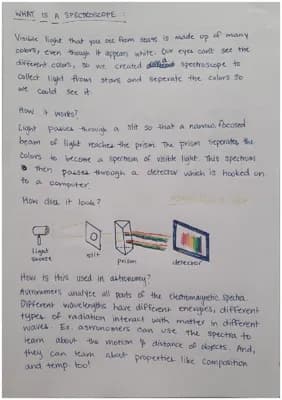 WHAT IS A SPECTROSCOPE :
Visible light that you see from stars is made up of many
colors, even though it appears white. Our eyes can't see the
different colors, so we created a spectroscope to
collect light from stars and seperate the colors so
we could see it.
How it works?
Light passes through a slit so that a narrow, focused
beam of light reaches the prism. The prism seperates the
colors to become a spectrum of visible light. This spectrum
is then passes through a detector which is hooked on
to a computer.
How does it look?
light source
slit
prism
detector
How is this used in astronomy?
Astronomers analyze all parts of the electromagnetic spectra.
Different wavelengths have different energies, different
types of radiation interact with matter in different
waves. Ex. astronomers can use the spectra to
learn about the motion & distance of objects. And,
they can learn about properties like composition
and temp. too!